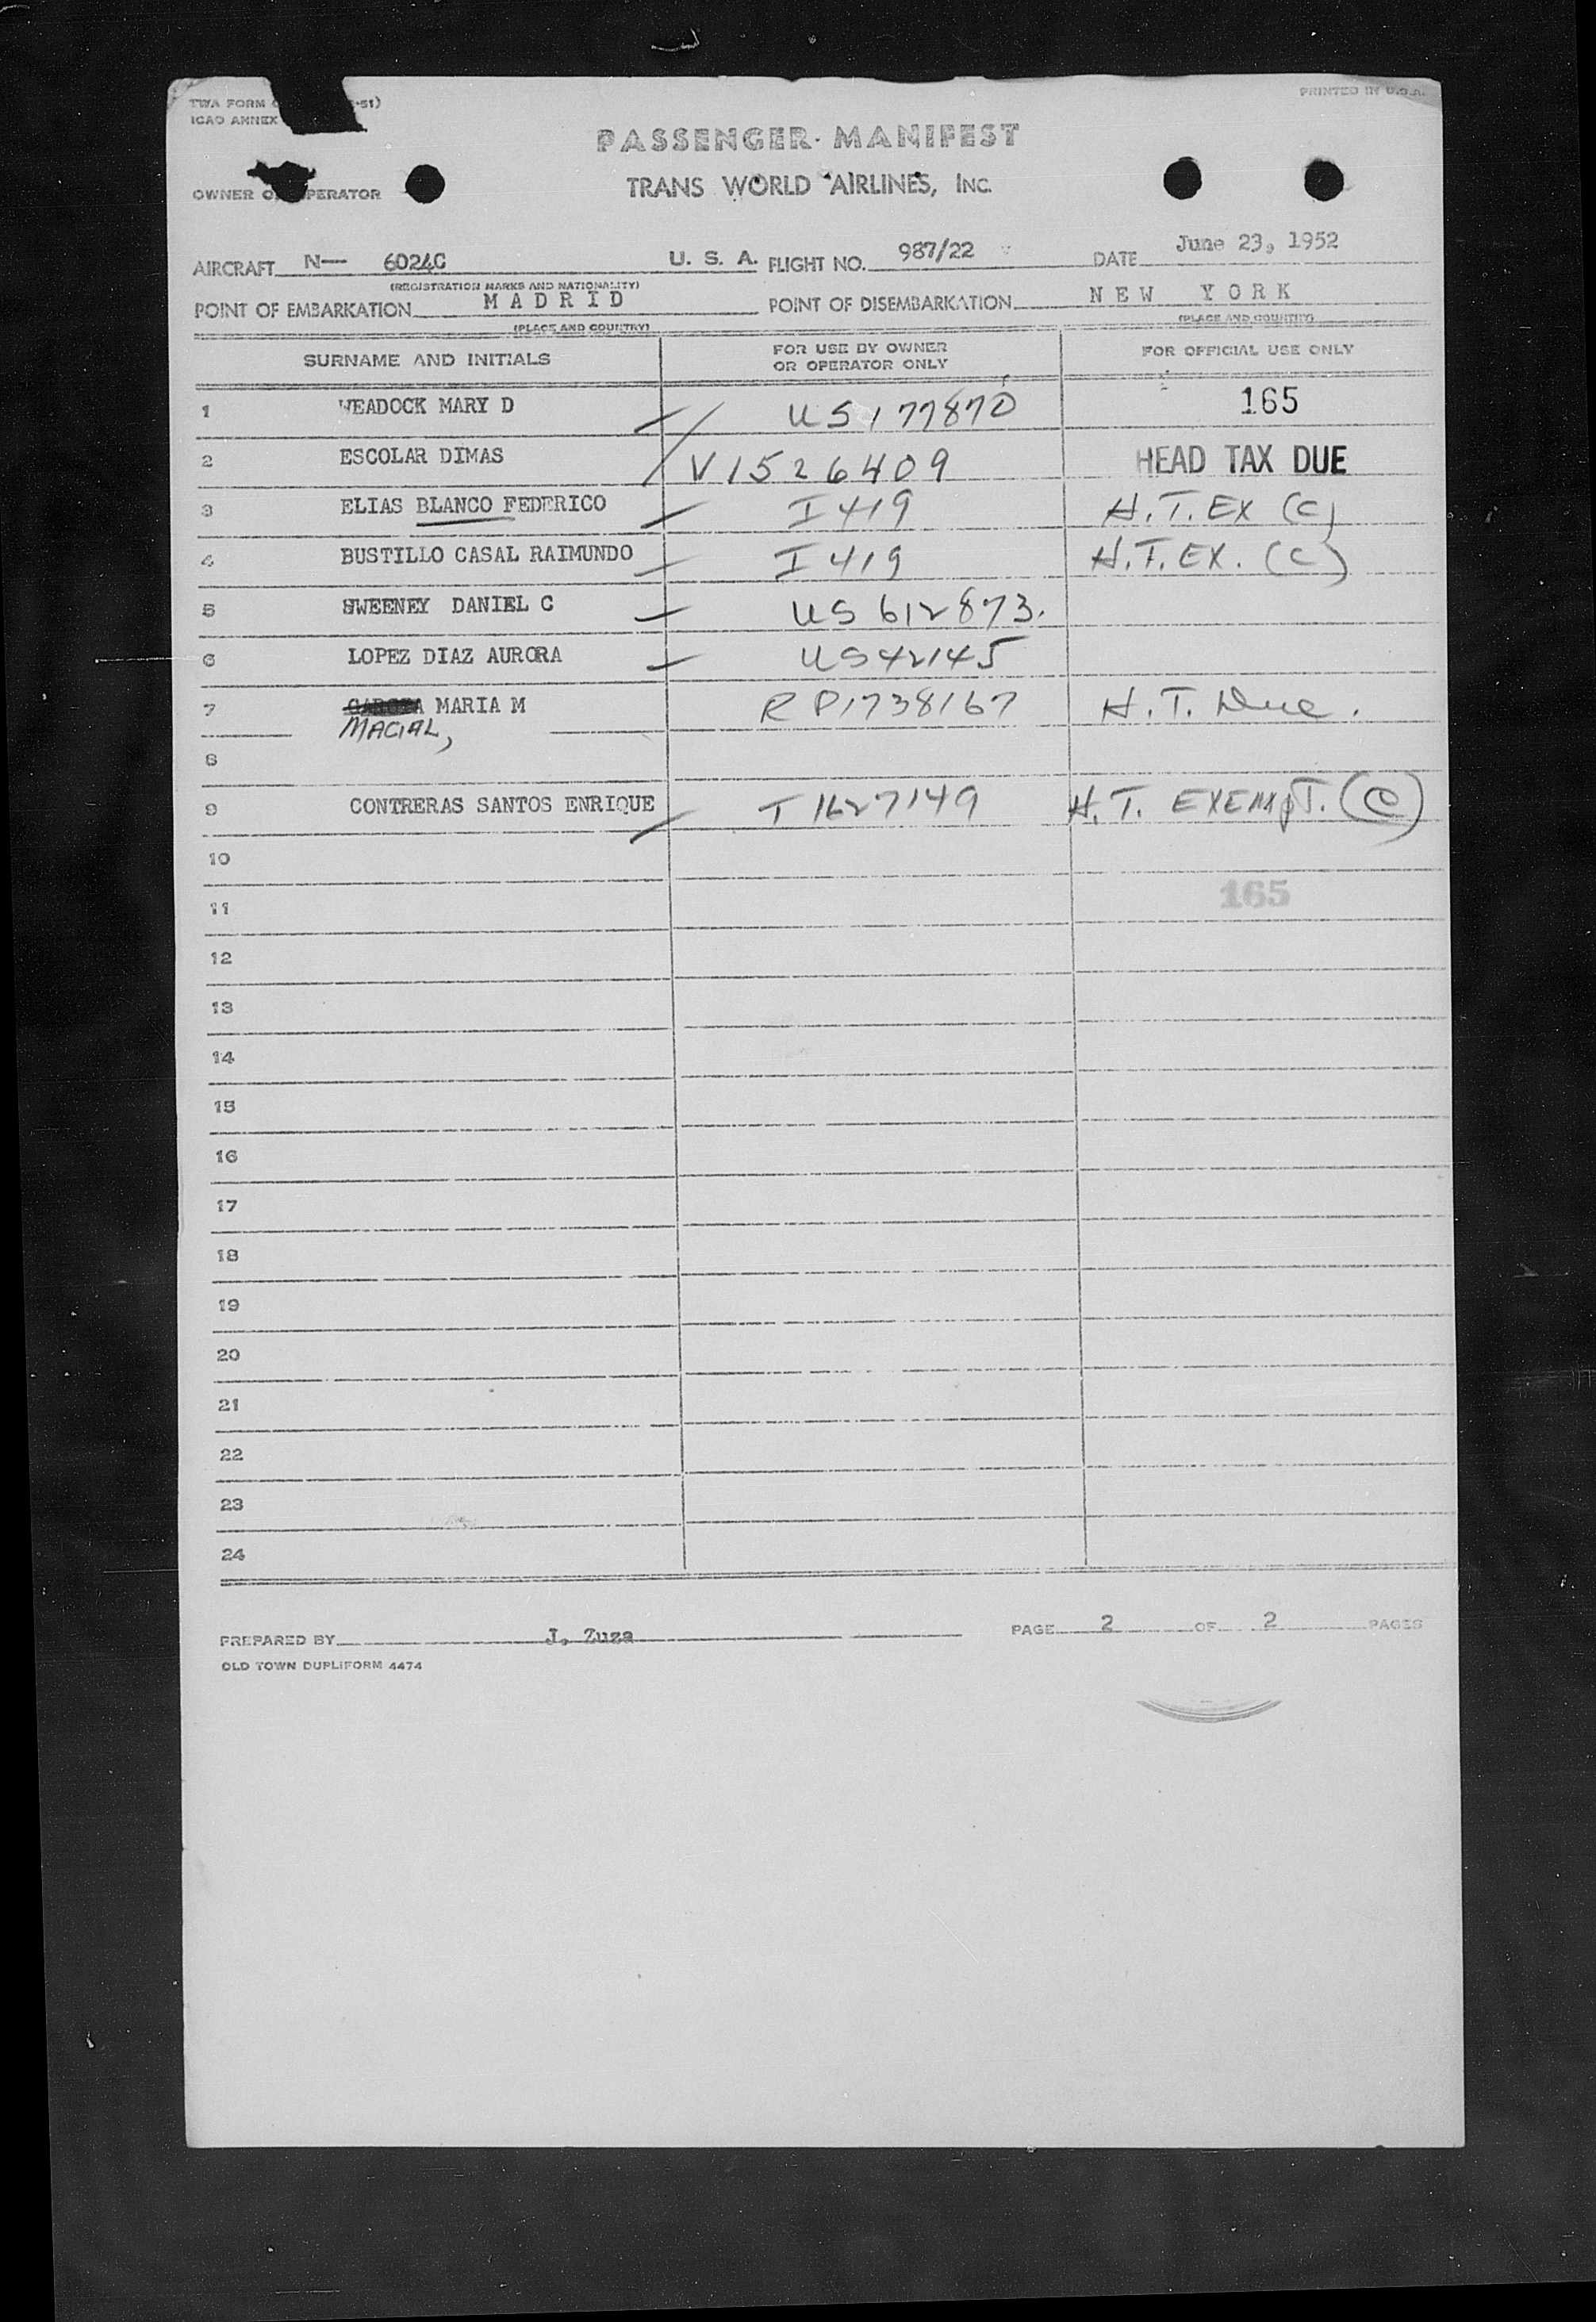 TWA FORM -51) PRINTED IN U.S.A.
ICAO ANNEX
PASSENGER MANIFEST
OWNER OPERATOR
TRANS WORLD AIRLINES, INC.
AIRCRAFT N— 6024C U. S. A. FLIGHT NO. 987/22 DATE June 23, 1952
(REGISTRATION MARKS AND NATIONALITY)
POINT OF EMBARKATION MADRID POINT OF DISEMBARKATION NEW YORK
(PLACE AND COUNTRY) (PLACE AND COUNTRY)
SURNAME AND INITIALS FOR USE BY OWNER OR OPERATOR ONLY FOR OFFICIAL USE ONLY
1 WEADOCK MARY D US 177870 165
2 ESCOLAR DIMAS V1526409 HEAD TAX DUE
3 ELIAS BLANCO FEDERICO I 419 H.T. EX (C)
4 BUSTILLO CASAL RAIMUNDO I 419 H.T. EX. (C)
5 SWEENEY DANIEL C US 612873.
6 LOPEZ DIAZ AURORA US 42145
7 MARIA M RP1738167 H.T. Due.
MACIAL,
8
9 CONTRERAS SANTOS ENRIQUE T 1627149 H.T. EXEMPT. (C)
10
11 165
12
13
14
15
16
17
18
19
20
21
22
23
24
PREPARED BY J, Zuza PAGE 2 OF 2 PAGES
OLD TOWN DUPLIFORM 4474